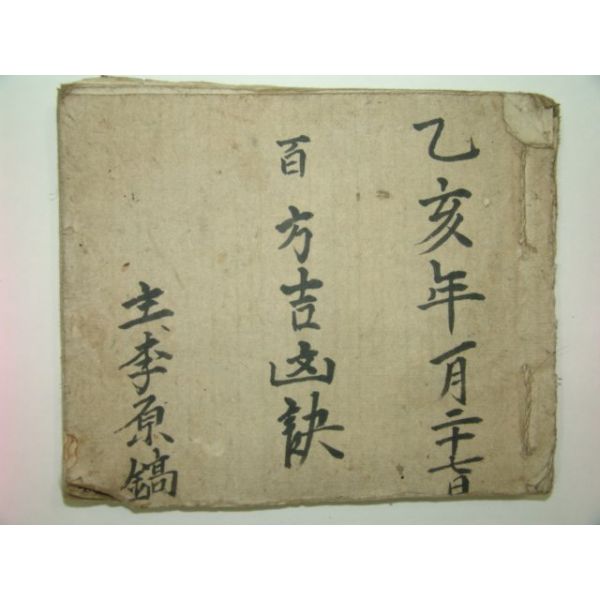 乙亥年一月二十七日
百方吉凶訣
主李原鎬